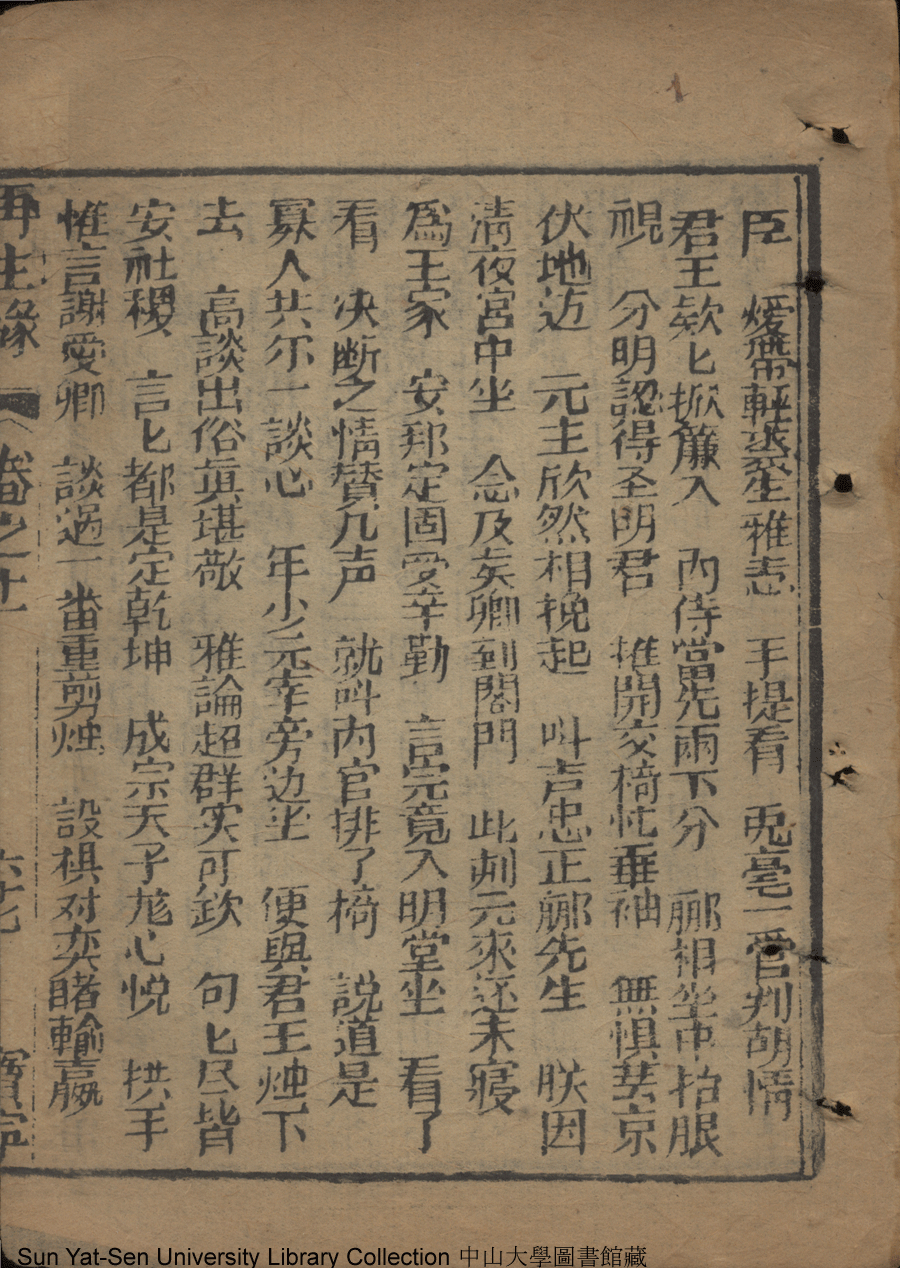 臣 煖帶輕裘生雅志 手提看 兎毫一管判胡情
君王欵匕掀簾入 內侍當先兩下分 酈相坐中抬眼
視 分明認得圣明君 推開交椅忙垂袖 無惧芸京
伏地迎 元主欣然相挽起 叫声忠正酈先生 朕因
清夜宮中坐 念及矣卿到閣門 此刺元來还未寢
爲王家 安邦定固受辛勤 言完竟入明堂坐 看了
看 決断之情賛几声 就叫內官排了椅 説道是
寡人共尔一談心 年少元宰旁边坐 便與君王烛下
去 高談出俗真堪敬 雅論超群实可欽 句匕尽皆
安社稷 言匕都是定乾坤 成宗天子尨心悦 拱手
惟言謝爱卿 談過一畨重剪烛 設棋对奕賭輸嬴
再生緣 卷之十 六十七 寳寧
Sun Yat-Sen University Library Collection 中山大學圖書館藏